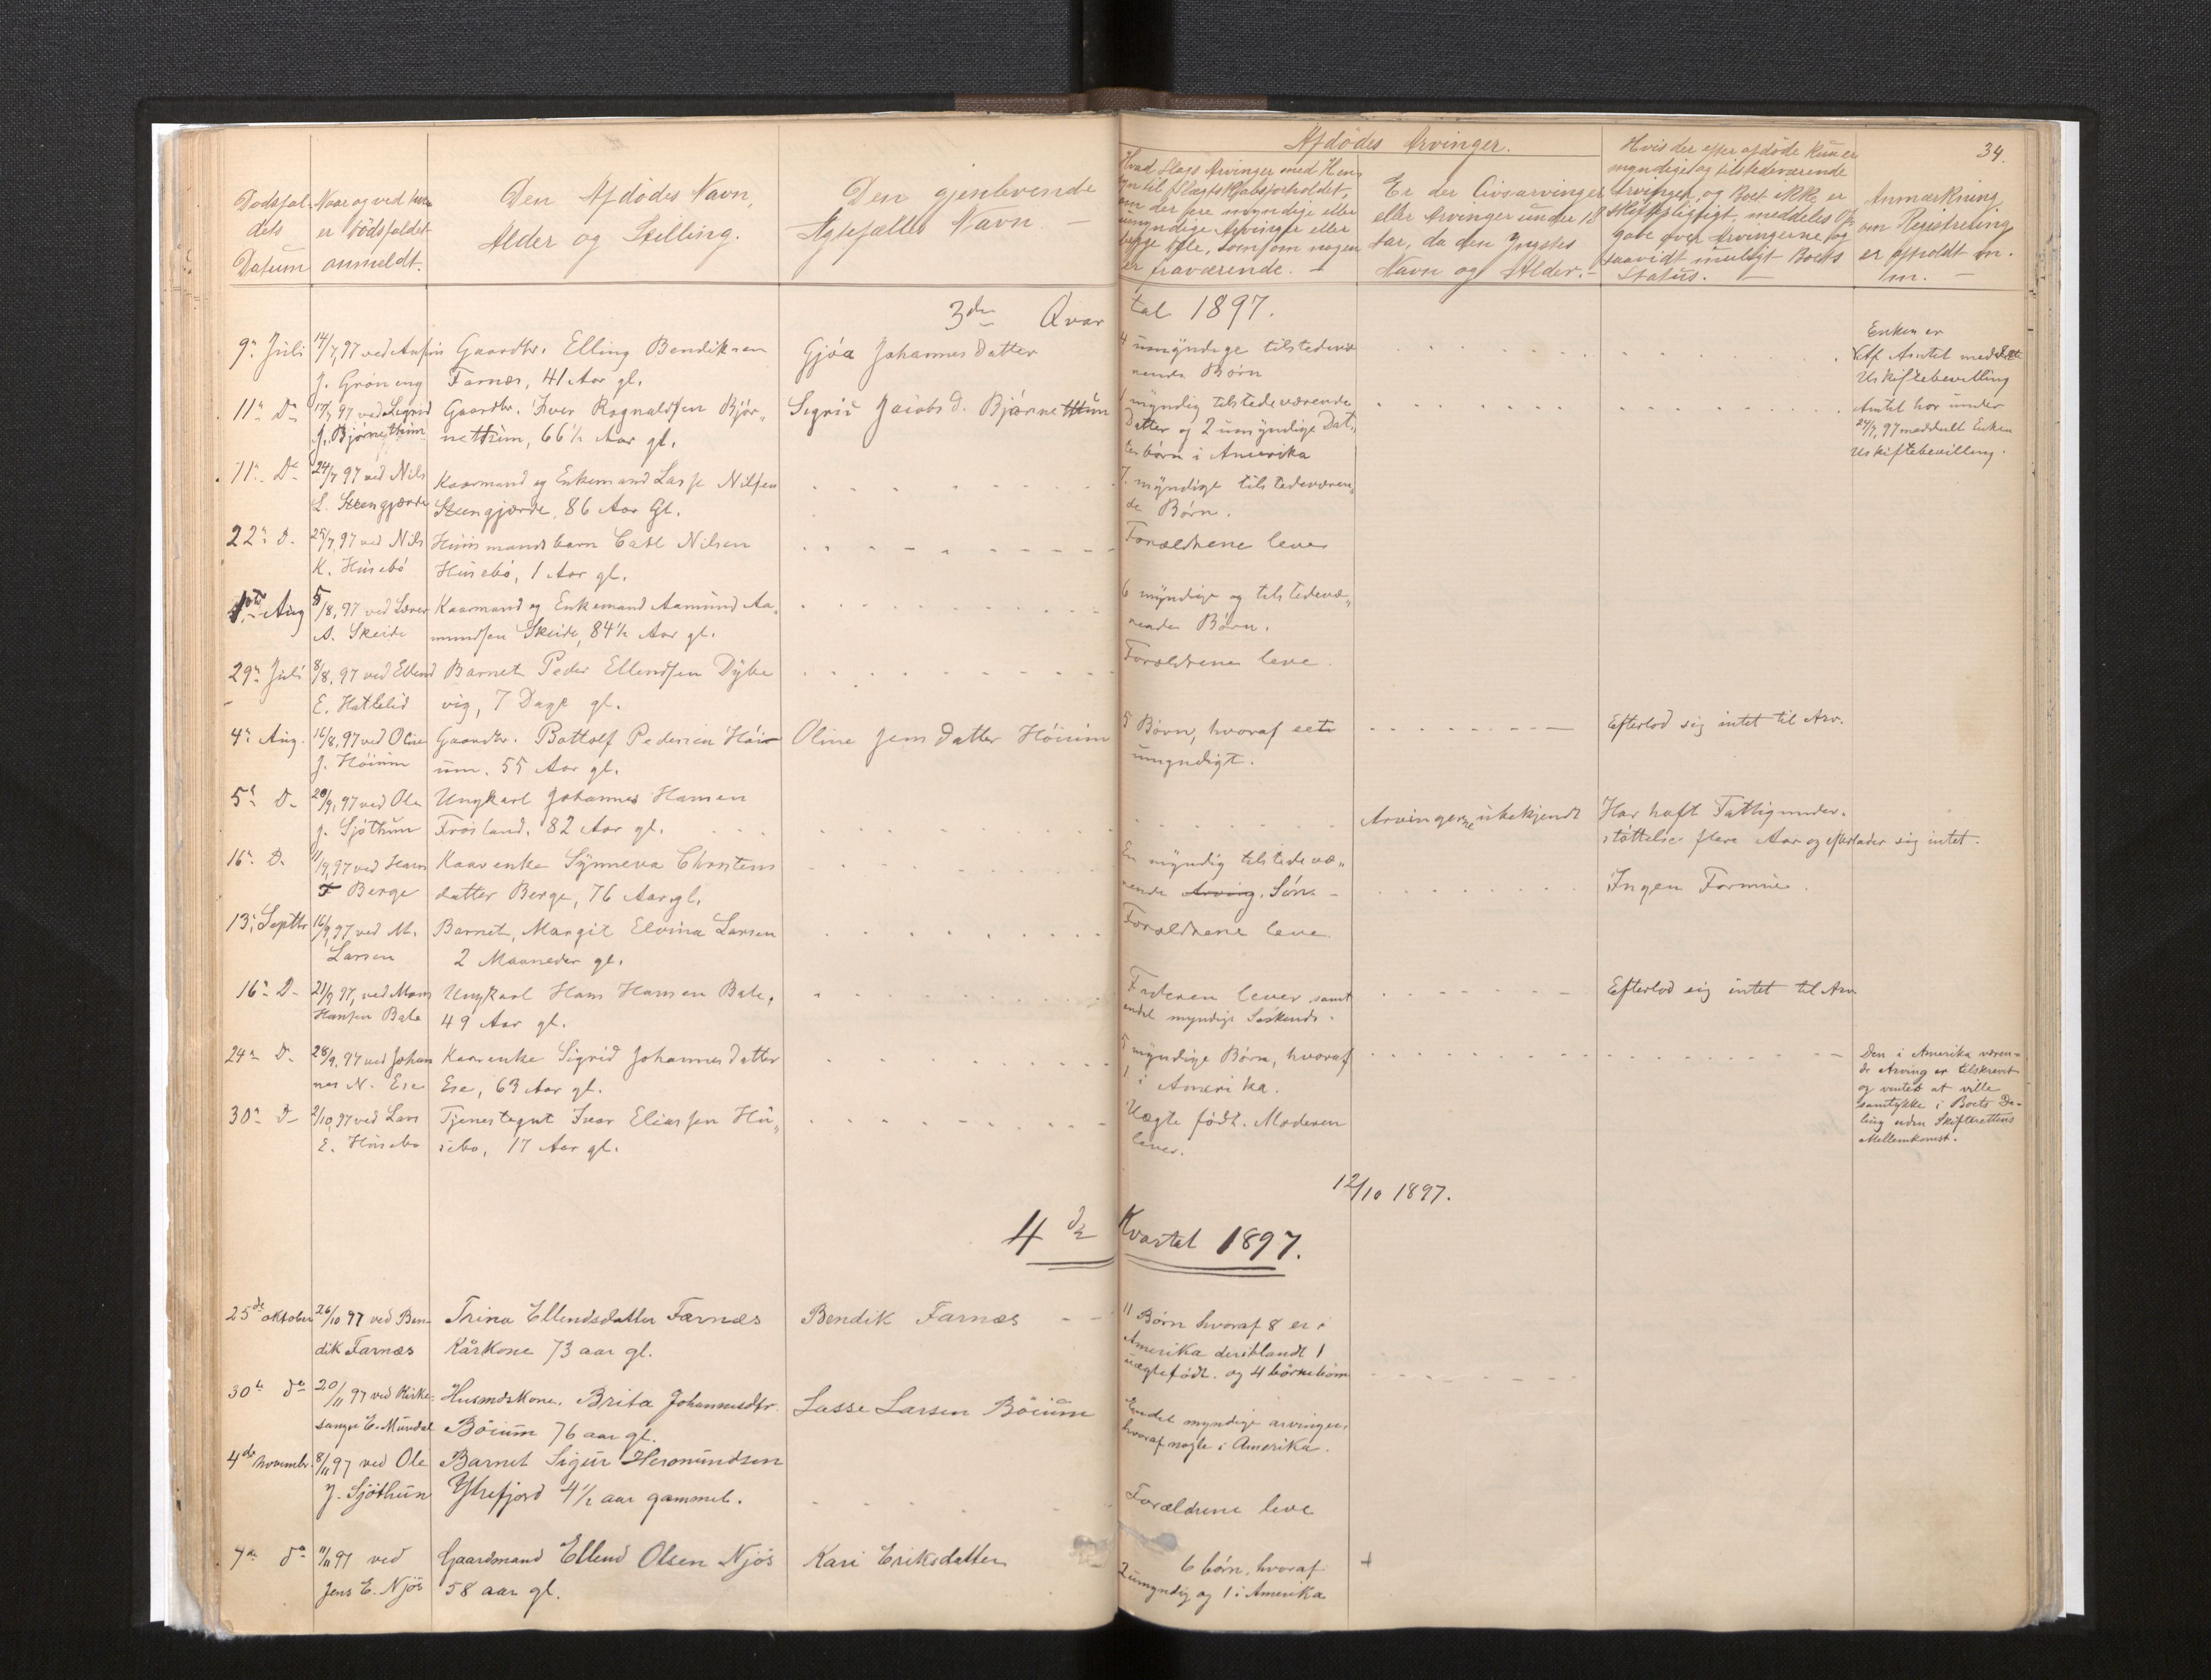 34.
Afdödes Arvinger.
Dødsfal-
dets
Datum
Naar og ved hvem
er Dödsfaldet
anmeldt.
Den Afdödes Navn,
Alder og Stilling.
Den gjenlevende
Ægtefælles Navn. —
Hvad Slags Arvinger med Hen-
syn til Slægtskabsforholdet,
om der ere myndige eller
umyndige Arvinger eller
begge Dele, som om nogen
er fraværende. —
Er der Livsarvinger
eller Arvinger under 18
Aar, da den Yngstes
Navn og Alder. —
Hvis der efter afdöde kun er
myndige og tilstedeværende
Arvinger, og Boet ikke er
skiftepligtigt, meddeles Op-
gave over Arvingerne og
saavidt muligt Boets
Status. —
Anmærkning
om Registrering
er afholdt m.
m. —
3die Qvartal 1897.
9n Juli 14/7, 97 ved Anfin Gaardbr. Elling Bendiksen Gjöa Johannesdatter 4 umyndige tilstedevæ
J. Gröneng Farnæs, 41 Aar gl. rende Børn
Enken er
Af Amtet meddelt
Uskiftebevilling
11n Do 17/7 97 ved Sigrid Gaardbr. Iver Ragnaldsen Bjør- Sigrid Jacobsd. Bjørnetthun 1 myndig tilstedeværende
J. Bjørnethun netthun, 66½ Aar gl. Datter og 2 umyndige Dat-
terbørn i Amerika
Amtet har under
27/7, 97 meddelt Enken
Uskiftebevilling.
11n Do 24/7 97 ved Nils Kaarmand og Enkemand Lasse Nilsen 7 myndige tilstedeværen-
L. Steengjærde Steengjærde, 86 Aar Gl. de Børn.
22n D. 25/7, 97 ved Nils Huusmandsbarn Carl Nilsen Forældrene lever
K. Husebö Husebö, 1 Aar gl.
1ste Aug 5/8, 97 ved Kaarmand og Enkemand Aamund Aa- 6 myndige og tilstedevæ-
A. Skeide mundsen Skeide, 84½ Aar gl. rende Børn.
29n Juli 8/8, 97 ved Ellend Barnet Peder Ellendsen Dybe Forældrene leve.
E. Hatlelid vig, 7 Dage gl.
4n Aug. 16/8, 97 ved Oline Gaardbr. Bottolf Pedersen Höi- Oline Jensdatter Höium 5 Børn, hvoraf eet Efterlod sig intet til Arv.
J. Höium um. 55 Aar gl. umyndigt.
5n D. 20/9, 97 ved Ole Ungkarl Johannes Hansen Arvingerne ubekjendt Har haft Fattigunder-
J. Sjöthun Frösland. 82 Aar gl. støttelse flere Aar og efterlader sig intet.
16n D. 11/9, 97 ved Hans Kaarenke Synneva Thorstens En myndig tilstedevæ-
T Berge datter Berge, 76 Aar gl. rende Arving. Sön. Ingen Formue.
13n Septbr 16/9, 97 ved M. Barnet, Margit Elvina Larsen Forældrene leve.
Larsen 2 Maaneder gl.
16n D. 21/9 97, ved Mons Ungkarl Hans Hansen Bale, Faderen lever samt Efterlod sig intet til Arv
Hansen Bale 49 Aar gl. endel myndige Søskende.
24n D. 28/9, 97 ved Johan Kaarenke Sigrid Johannesdatter 5 myndige Børn, hvoraf
nes N. Ese Ese, 63 Aar gl. 1 i Amerika.
Den i Amerika væren-
de Arving er tilskrevet
og ventes at ville
samtykke i Boets De-
ling uden Skifterettens
Mellemkomst.
30n D 2/10, 97 ved Lars Tjenestegut Ivar Eliassen Hu- Uægte født. Moderen
E. Husebø sebø, 17 Aar gl. lever.
12/10 1897.
4de Kvartal 1897.
25de oktober 26/10 97 ved Ben- Trina Ellendsdatter Farnæs Bendik Farnæs 11 Børn hvoraf 8 er i
dik Farnæs Kårkone 73 aar gl. Amerika deriblandt 1
uægtefødt. og 4 börnebörn
30te do 20/11 97 ved Kirke- Husmdskone. Brita Johannesdtr. Lasse Larsen Böium Endel myndige arvinger,
sanger E. Mundal Böium 76 aar gl. hvoraf nogle i Amerika.
4de novembr. 8/11 97 ved Ole Barnet Sigur Hermundsen
J. Sjöthun Ytrefjord 4½ aar gammel. Forældrene leve
7de do 11/11 97 ved Gaardmand Ellend Olsen Njös Kari Eriksdatter 6 børn, hvoraf +
Jens E. Njös 58 aar gl. 2 umyndig og 1 i Amerika